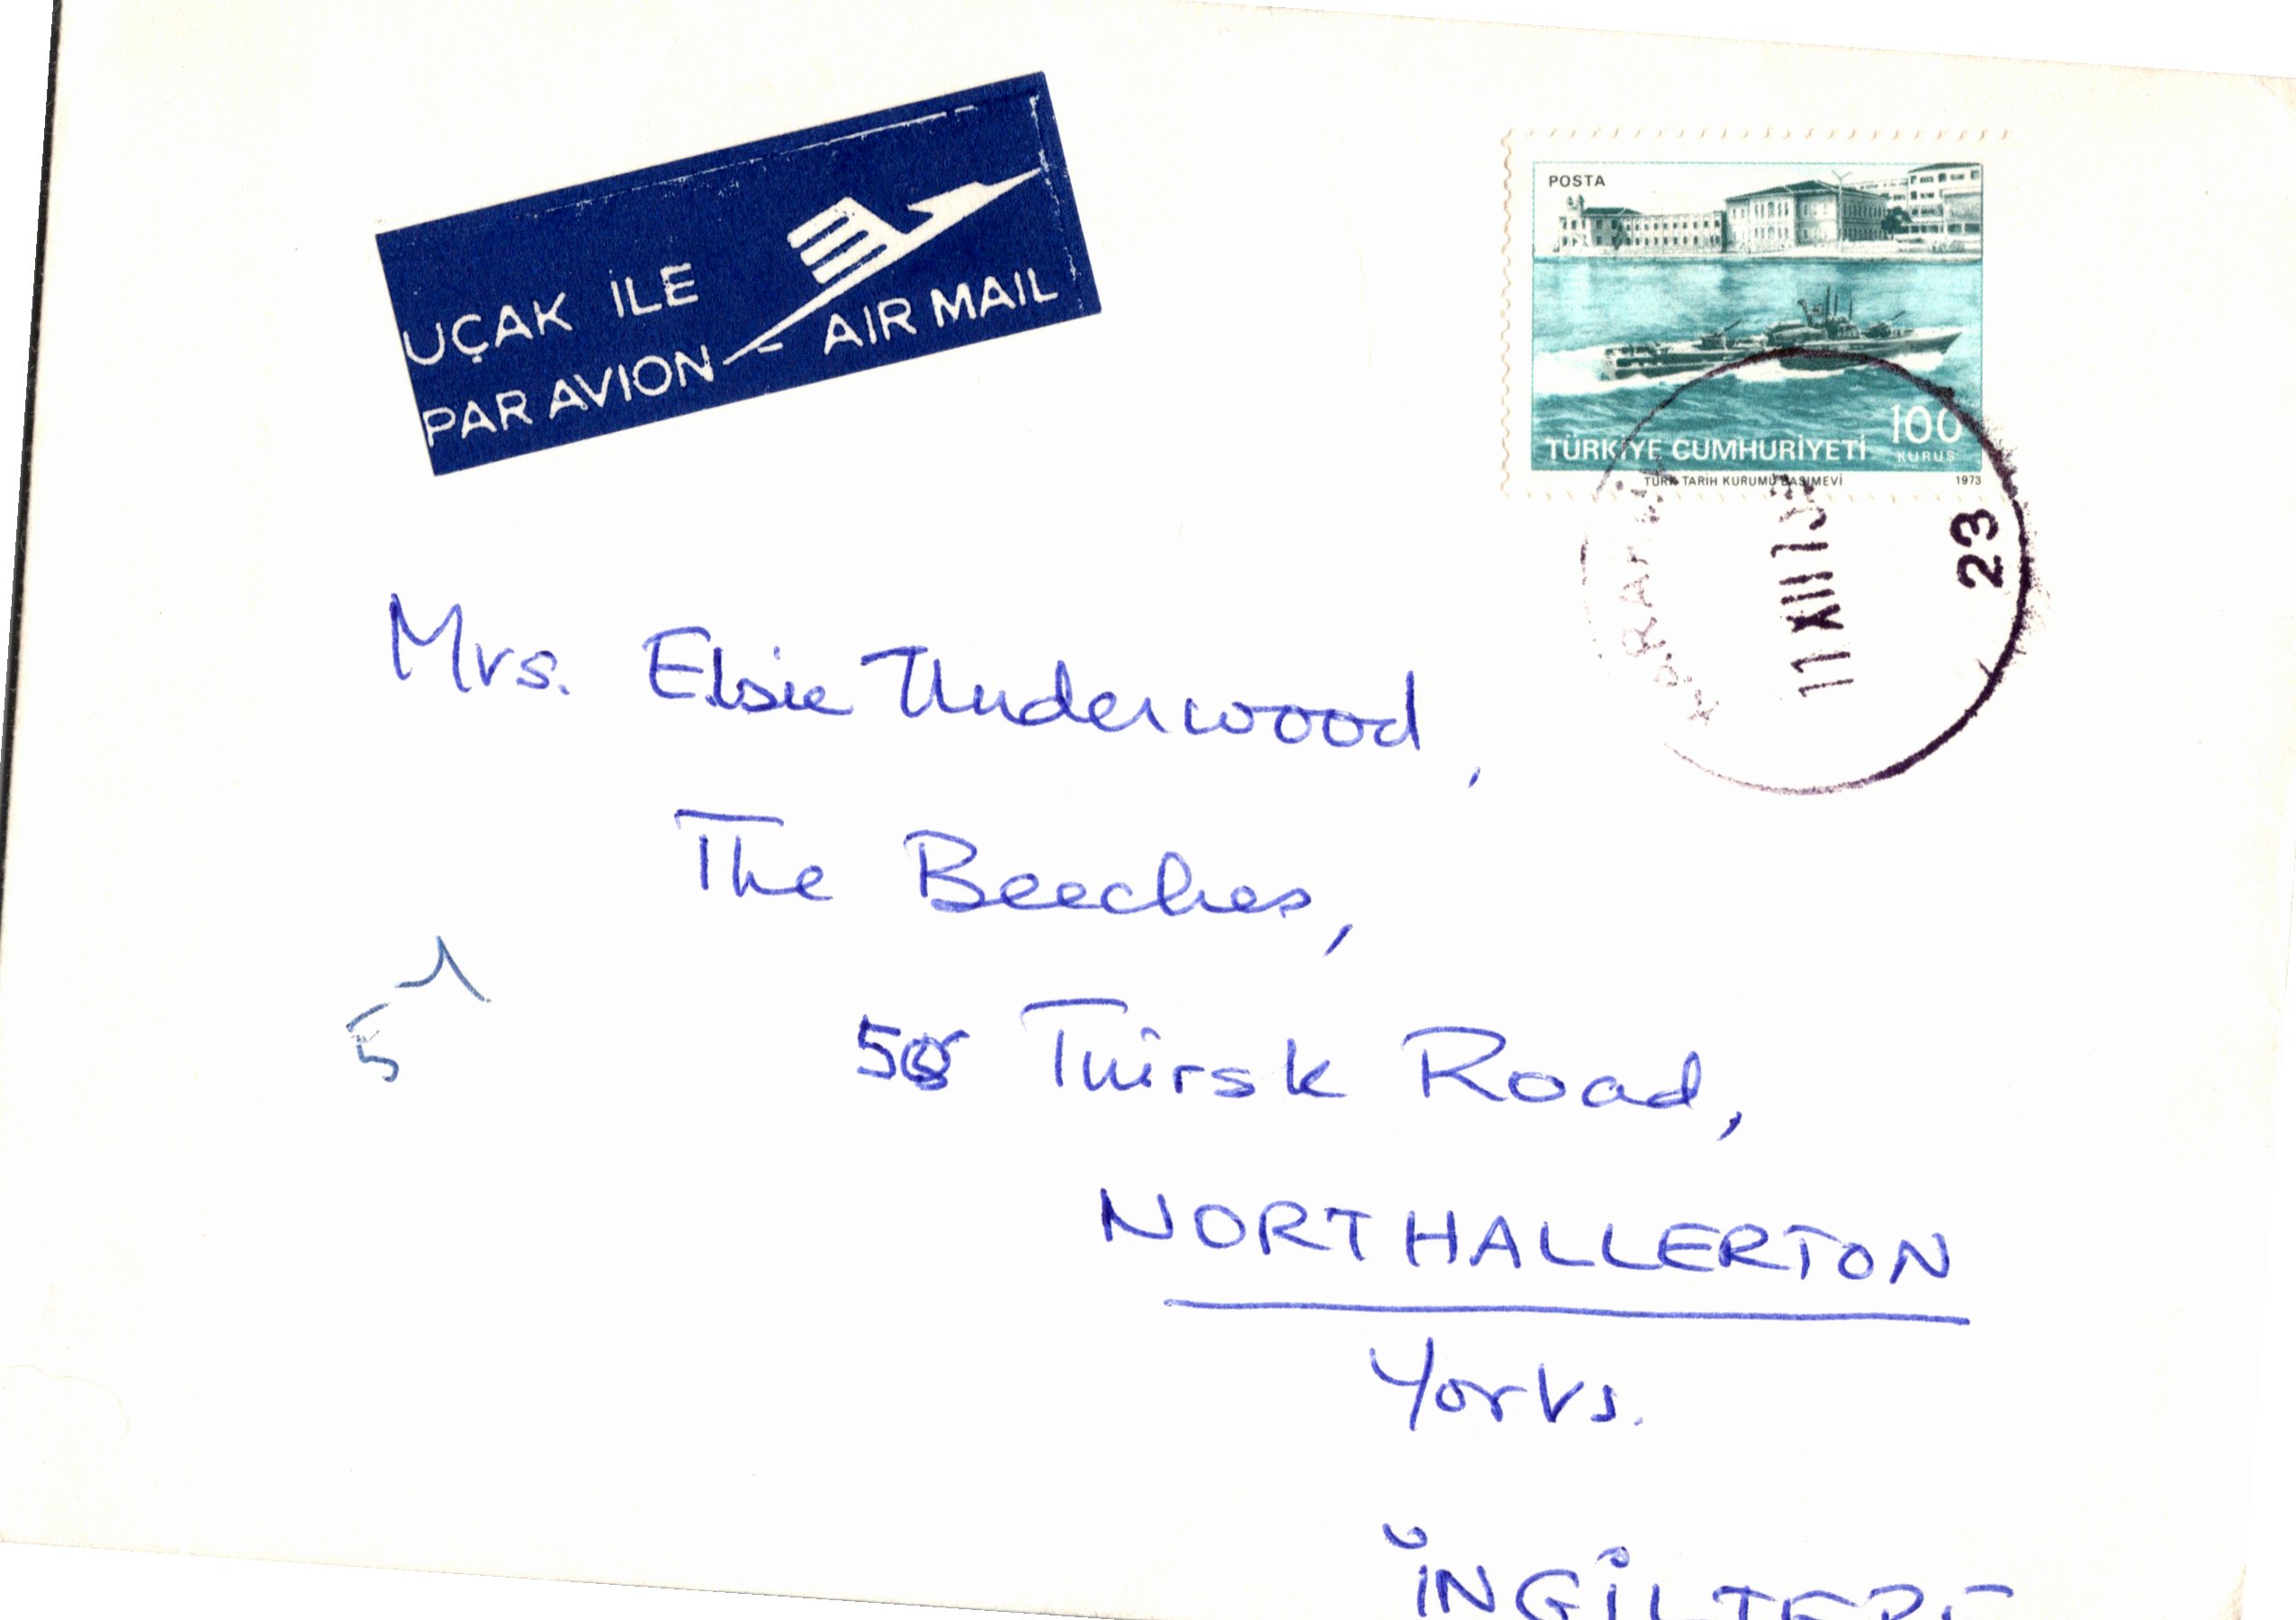 UÇAK İLE
PAR AVION AIR MAIL
POSTA
100
KURUŞ
TÜRKİYE CUMHURİYETİ
TÜRK TARİH KURUMU BASIMEVİ 1973
23
11 XII
Mrs. Elsie Underwood,
The Beeches,
58 Thirsk Road,
NORTHALLERTON
Yorks.
İNGİLTERE